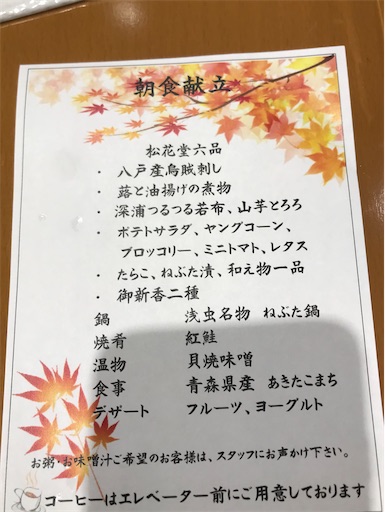 朝食献立
松花堂六品
・八戸産烏賊刺し
・蕗と油揚げの煮物
・深浦つるつる若布、山芋とろろ
・ポテトサラダ、ヤングコーン、
ブロッコリー、ミニトマト、レタス
・たらこ、ねぶた漬、和え物一品
・御新香二種
鍋 浅虫名物 ねぶた鍋
焼肴 紅鮭
温物 貝焼味噌
食事 青森県産 あきたこまち
デザート フルーツ、ヨーグルト
お粥・お味噌汁ご希望のお客様は、スタッフにお声かけ下さい。
コーヒーはエレベーター前にご用意しております